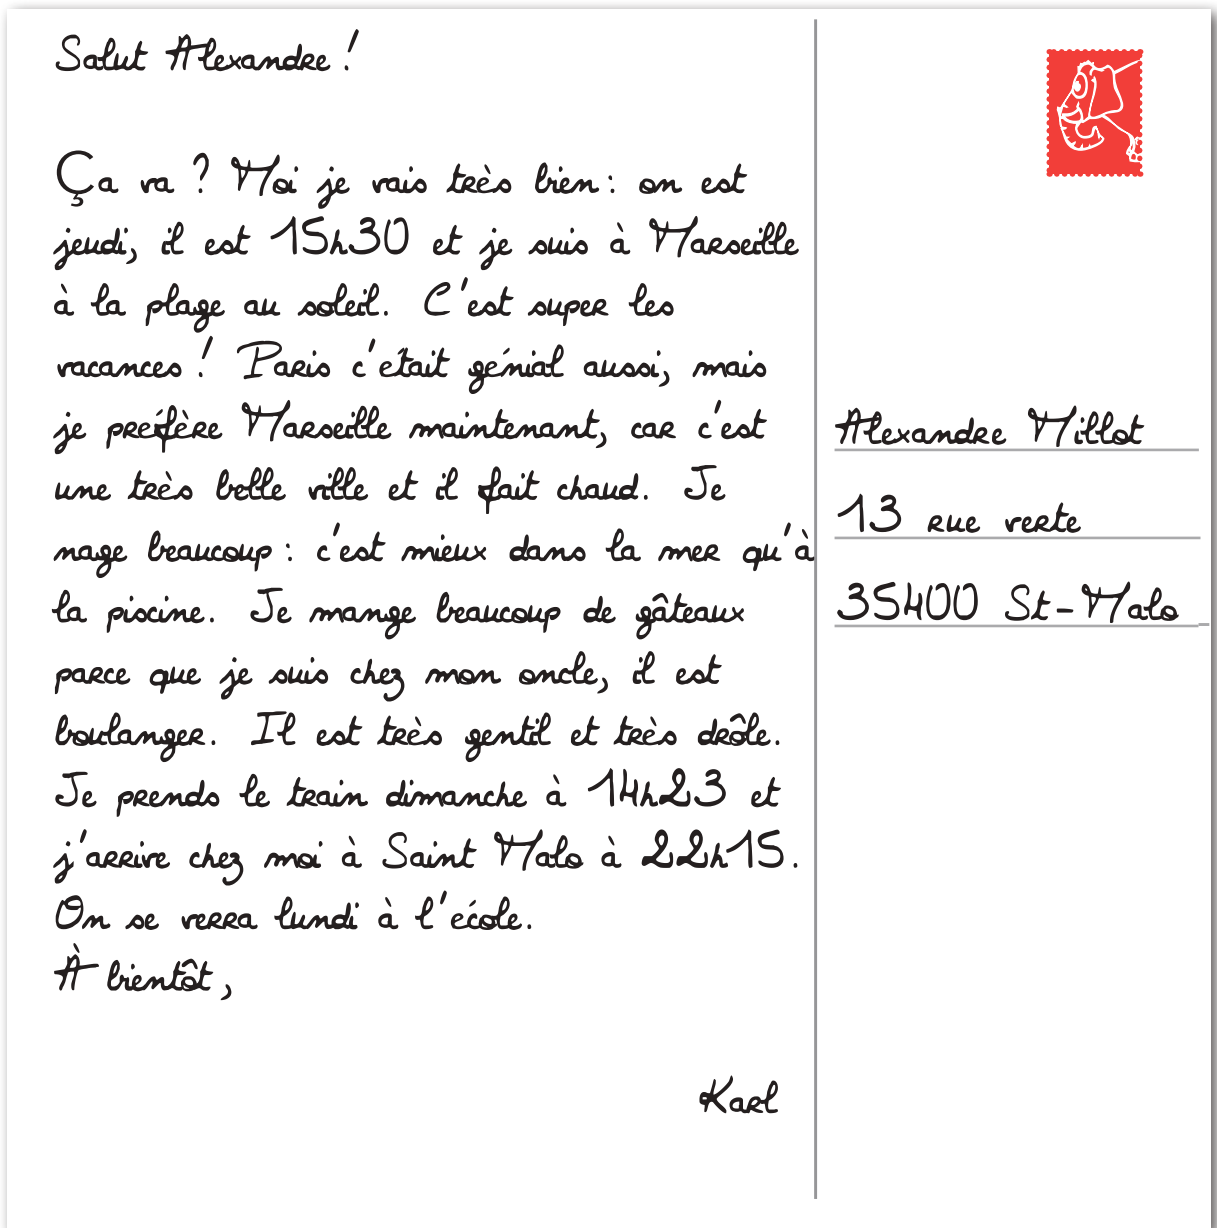 Salut Alexandre !
Ça va ? Moi je vais très bien : on est
jeudi, il est 15h30 et je suis à Marseille
à la plage au soleil. C'est super les
vacances ! Paris c'était génial aussi, mais
je préfère Marseille maintenant, car c'est
une très belle ville et il fait chaud. Je
nage beaucoup : c'est mieux dans la mer qu'à
la piscine. Je mange beaucoup de gâteaux
parce que je suis chez mon oncle, il est
boulanger. Il est très gentil et très drôle.
Je prends le train dimanche à 14h23 et
j'arrive chez moi à Saint Malo à 22h15.
On se verra lundi à l'école.
À bientôt,
Karl
Alexandre Millot
13 rue verte
35400 St-Malo